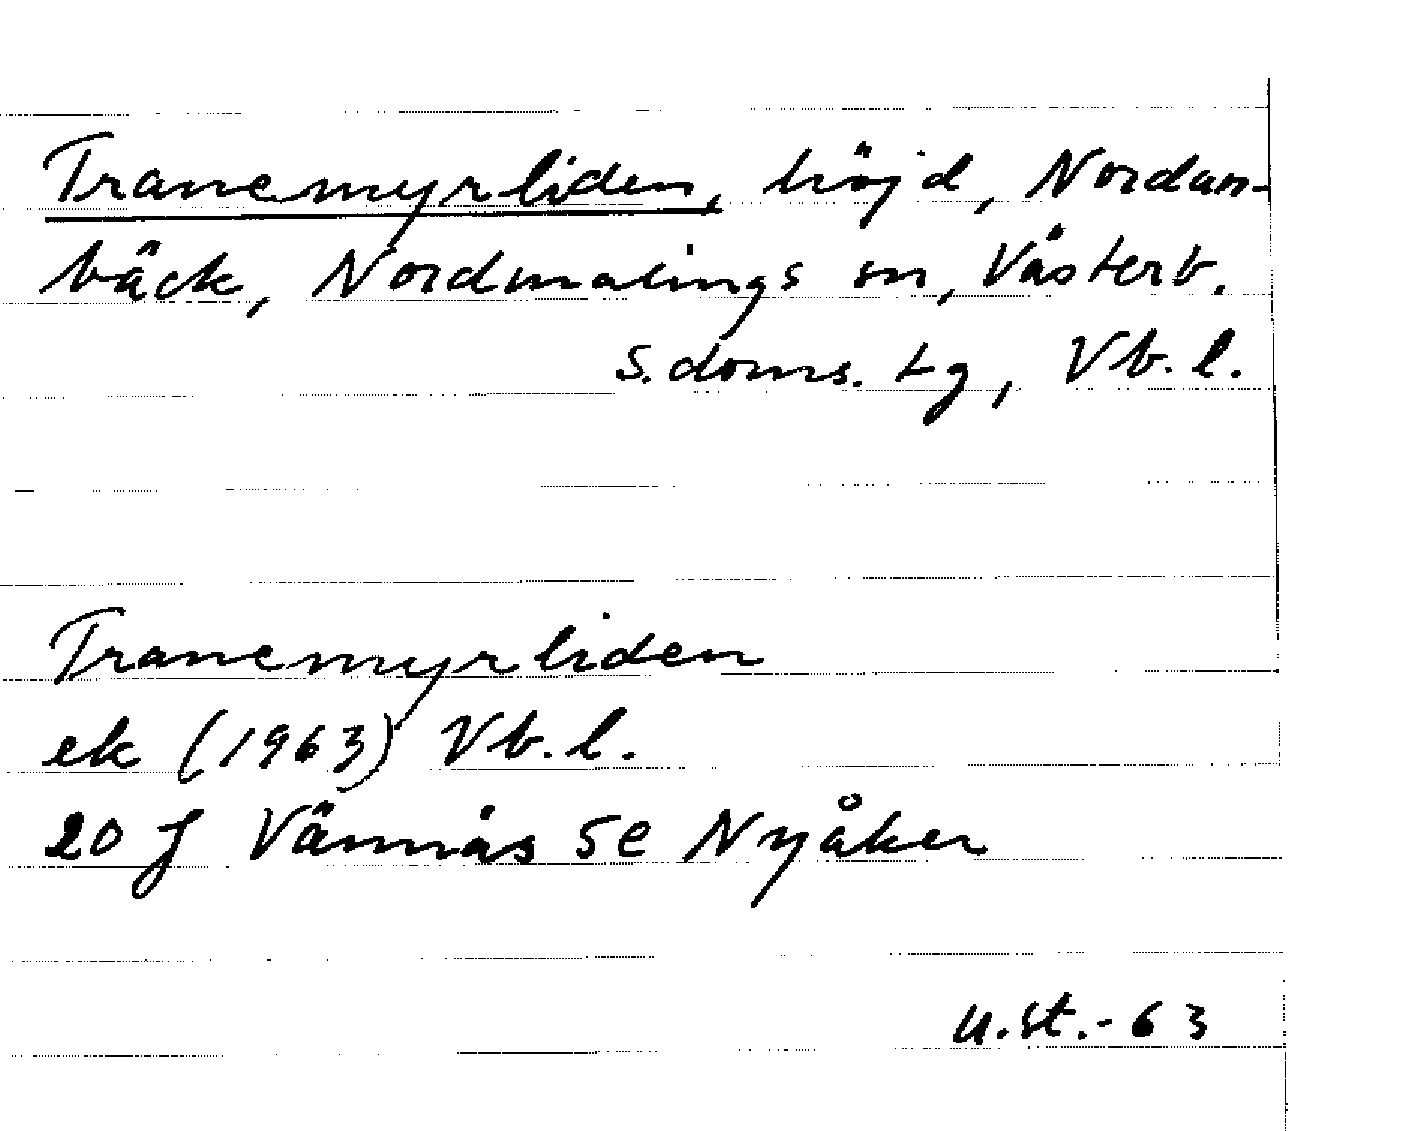 Tranemyrliden, höjd, Nordan-
bäck, Nordmalings sn, Västerb.
s. doms. tg, Vb. l.
Tranemyrliden
ek (1963) Vb. l.
20 J Vännäs SE Nyåker
u.st.-63